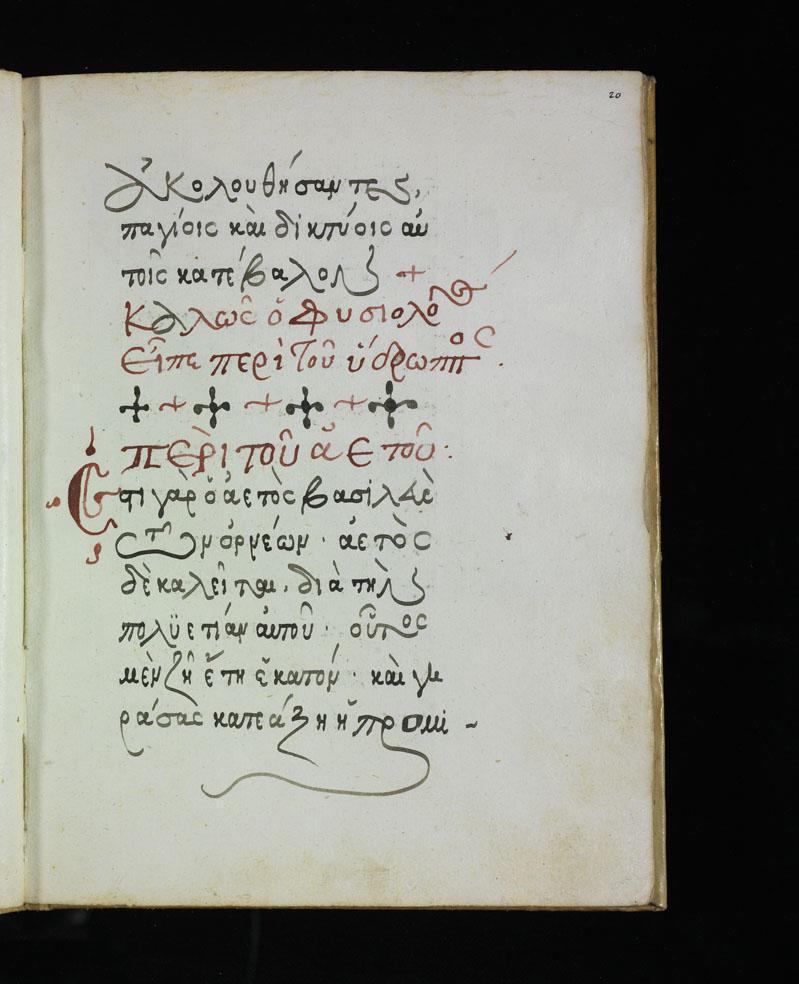 20
ἀκολουθήσαντες,
παγίσις καὶ δικτύοις αὐ
τοῖς κατέβαλον +
Καλῶς ὁ Φυσιολόγος
Εἶπε περὶ τοῦ ὕδρωπος .
+ + + + + + +
ΠΕΡὶ τοῦ ἀετοῦ:
Ἔστι γὰρ ὁ ἀετὸς βασιλεὺς
τῶν ὀρνέων · ἀετὸς
δὲ καλεῖται, διὰ τὴν
πολυετίαν αὐτοῦ · οὗτος
μὲν ζῆ ἔτη ἑκατόν · καὶ γη
ράσας κατεάζη ἡ προμὶ -